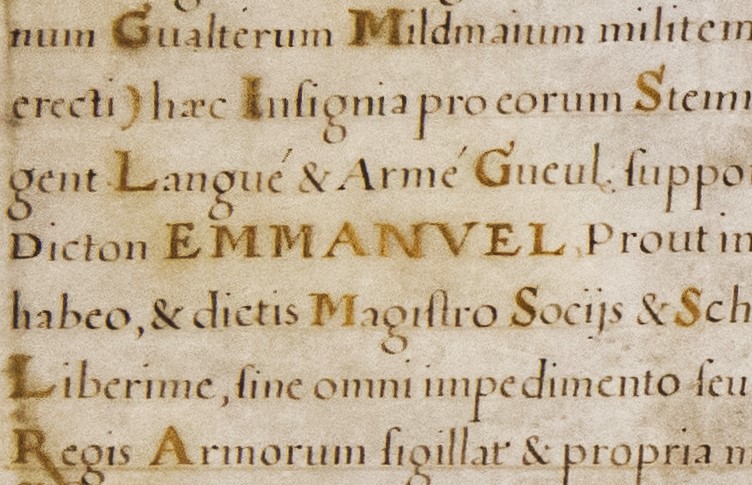 num Gualterum Mildmaium militem
erecti) hæc Insignia pro eorum Stem
gent Langué & Armé Gueul. suppo
Dicton EMMANVEL. Prout in
habeo, & dictis Magistro Socijs & Sch
Liberime, sine omni impedimento seu
Regis Armorum sigillat & propria m